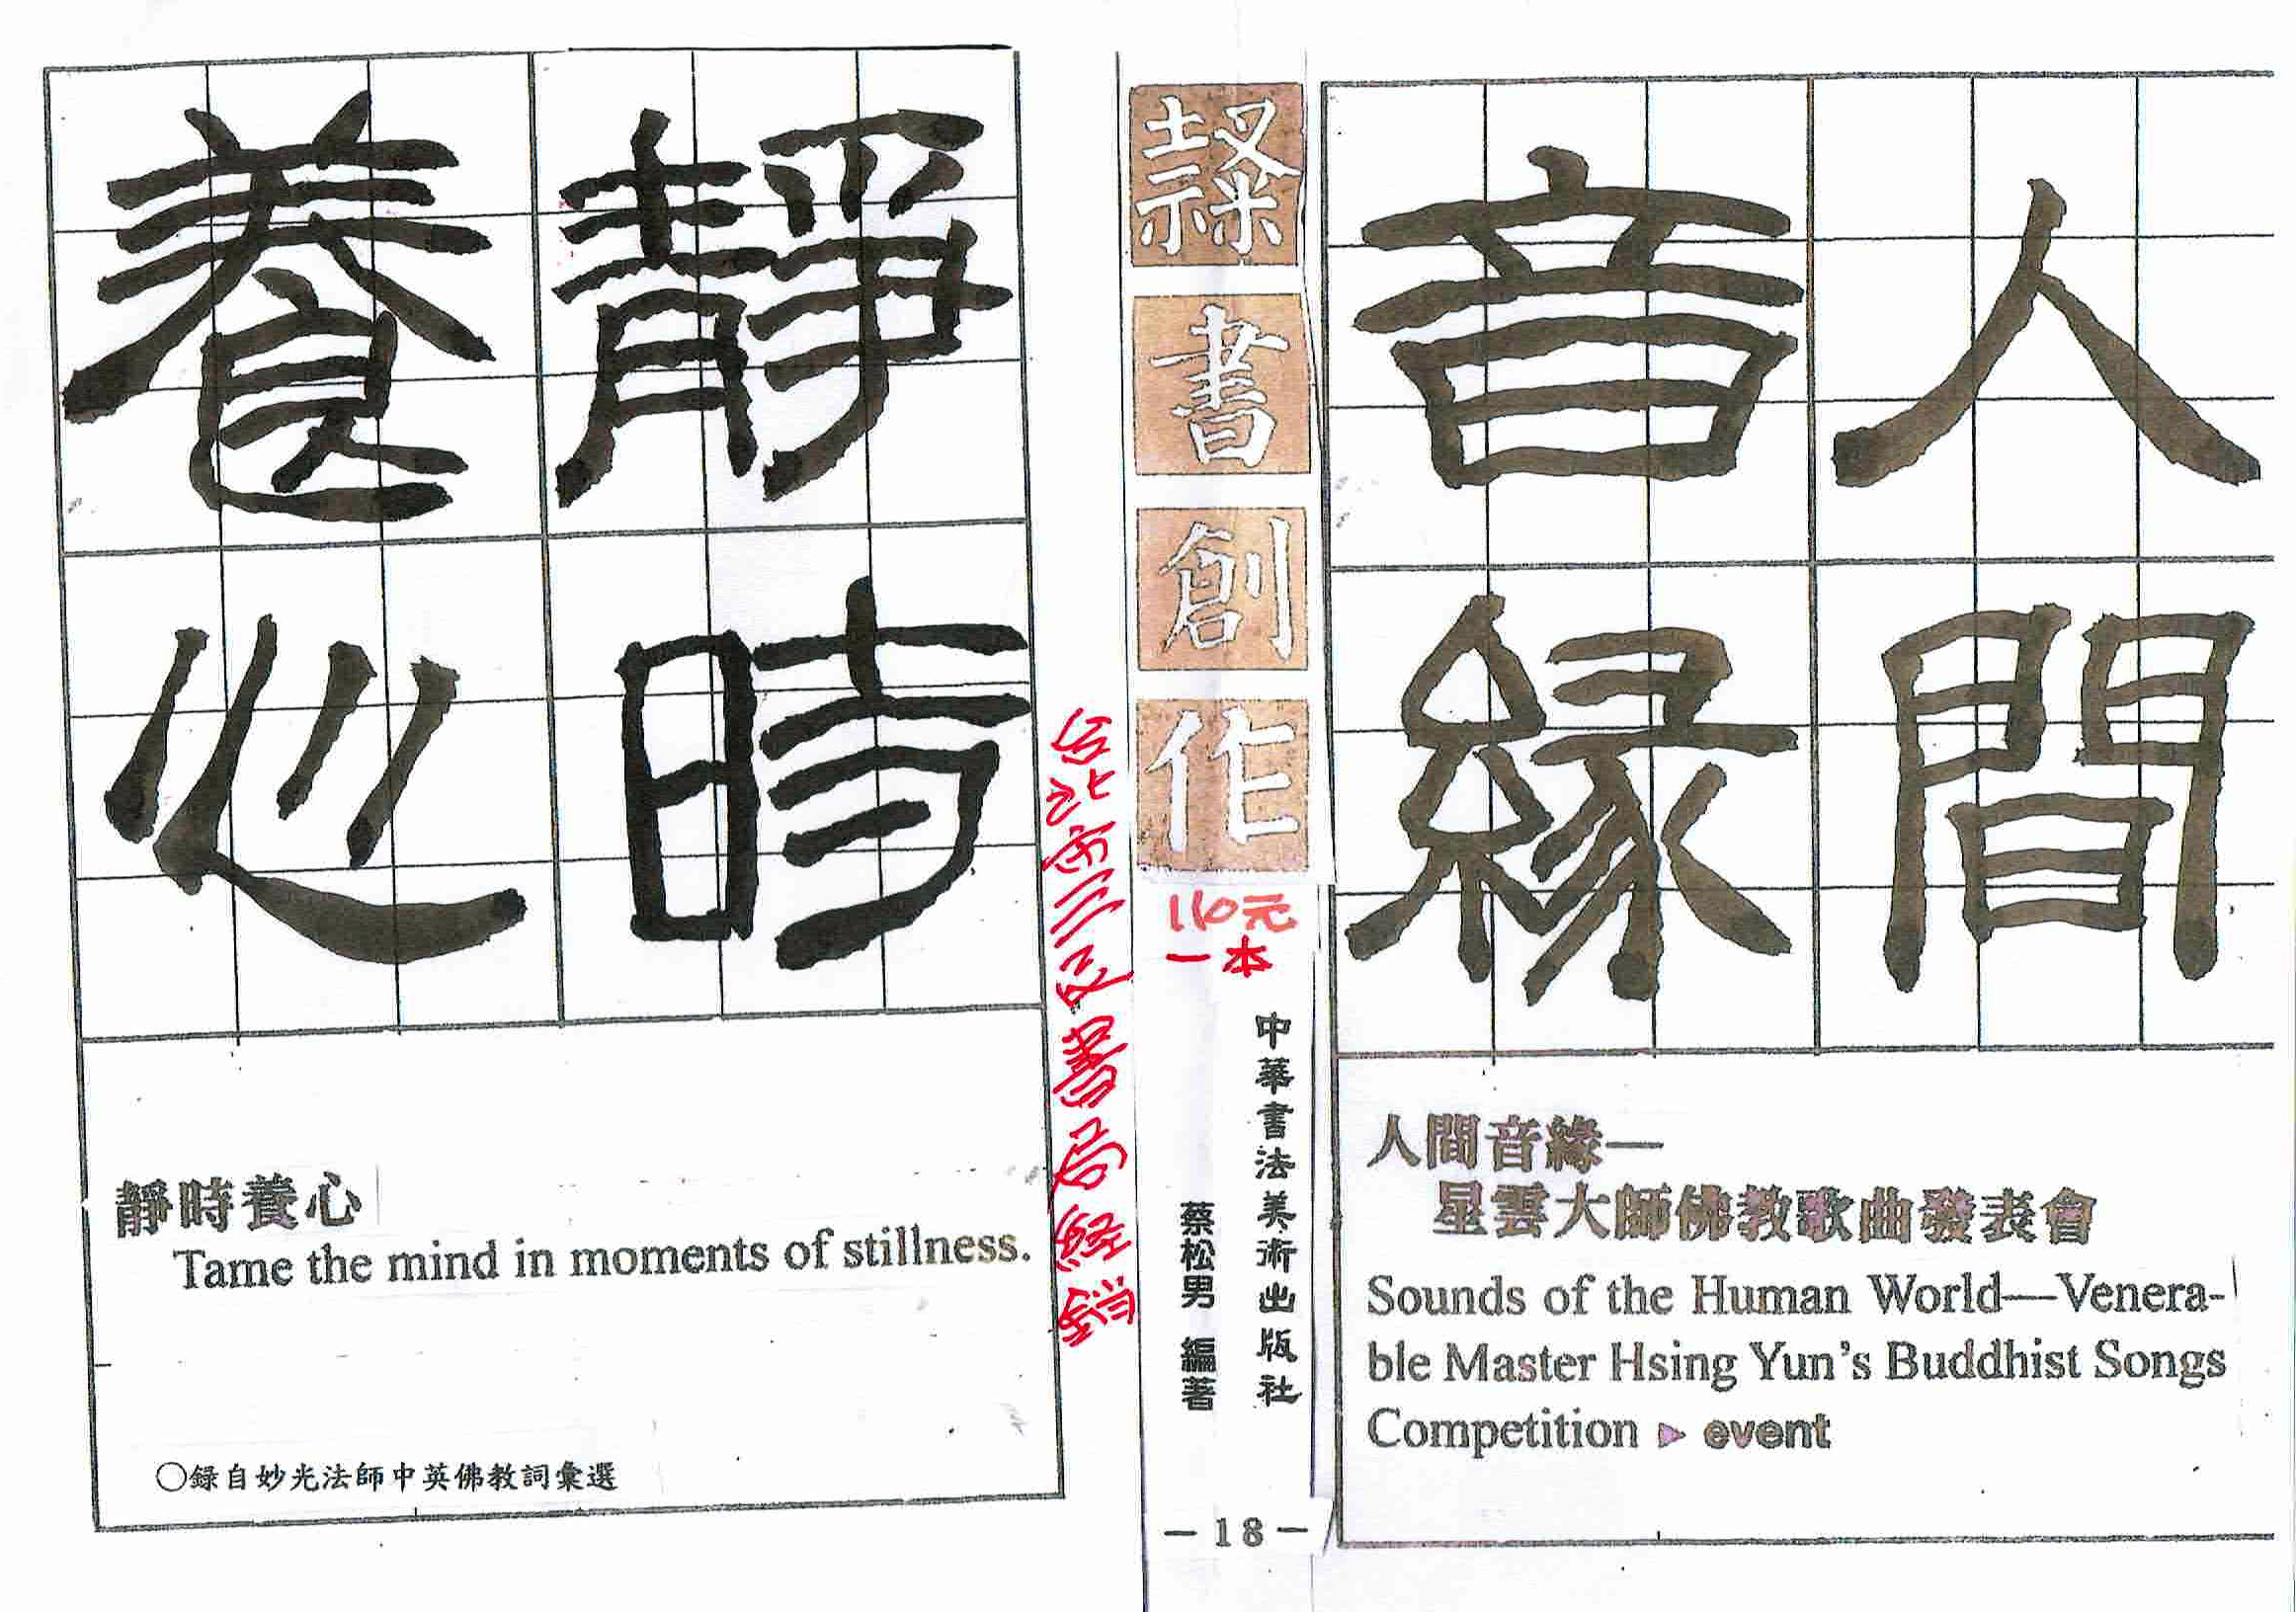 人間
音緣
人間音緣—
星雲大師佛教歌曲發表會
Sounds of the Human World—Venera-
ble Master Hsing Yun's Buddhist Songs
Competition ▶ event
隸書創作
110元
一本
中華書法美術出版社
蔡松男 編著
—18—
台北市三民書局經銷
靜時
養心
靜時養心
Tame the mind in moments of stillness.
○錄自妙光法師中英佛教詞彙選